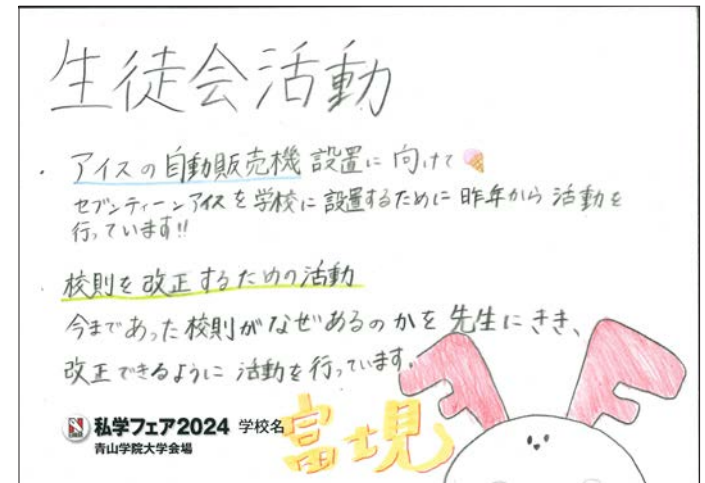 生徒会活動
・アイスの自動販売機設置に向けて
セブンティーンアイスを学校に設置するために昨年から活動を
行っています!!
・校則を改正するための活動
今まであった校則がなぜあるのかを先生にきき、
改正できるように活動を行っています。
私学フェア2024 学校名 富士見
青山学院大学会場